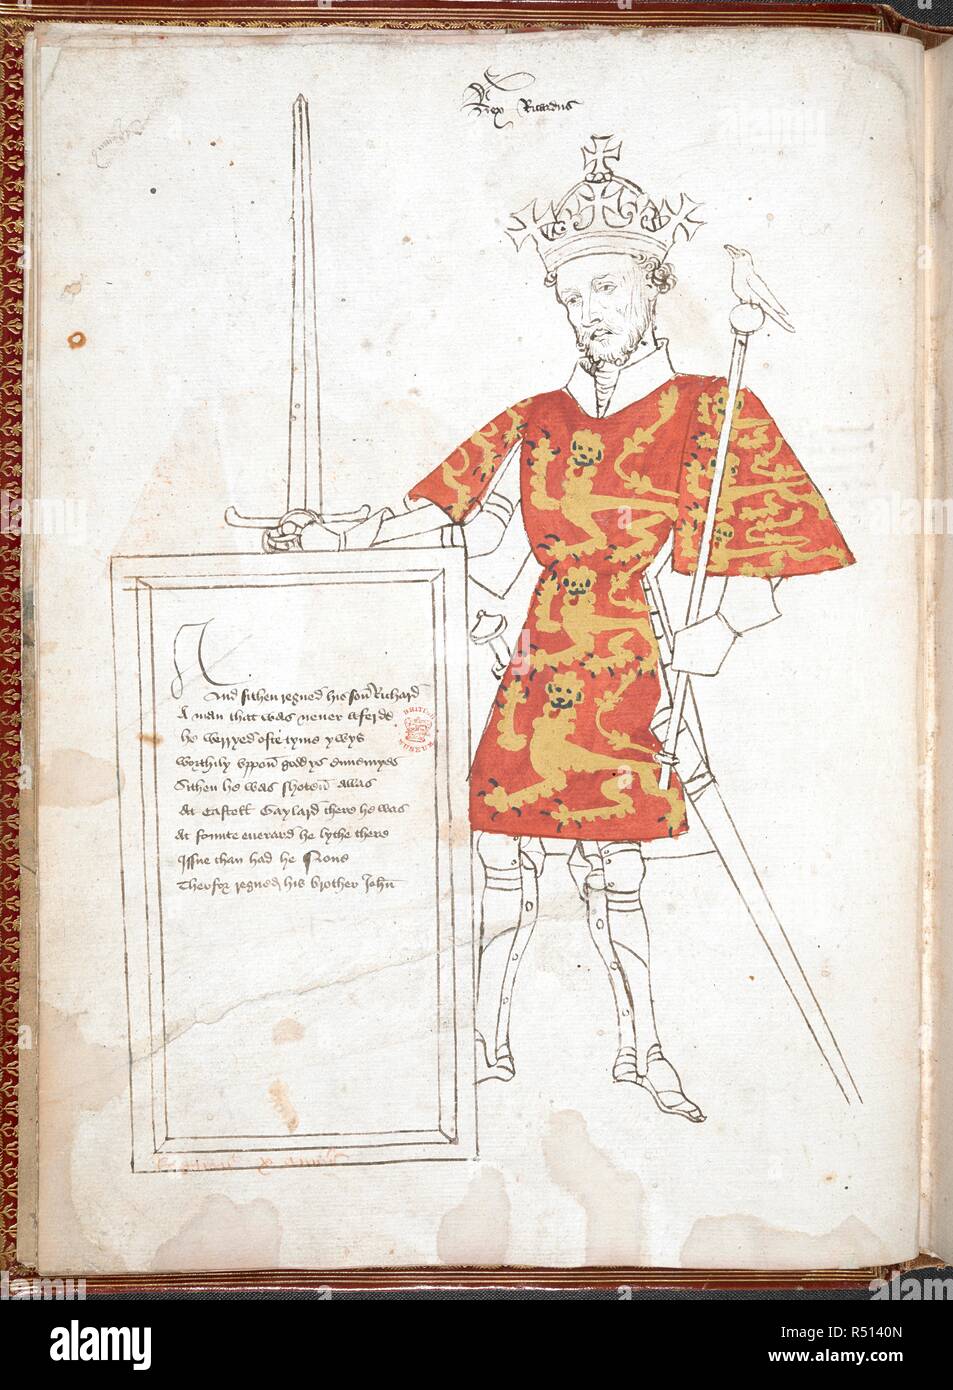 Rex Ricardus
And sithen regned his son Richard
A man thatt was never aferde
he werryed ofte tyme ywys
worthily uppon goddys ennemyes
Sithen he was shoten allas
At Castell Gaylard there he was
At founte everard he lythe there
Issue than had he None
Therfor regned his brother John
BRITISH
MUSEUM
alamy
Image ID: R5140N
www.alamy.com